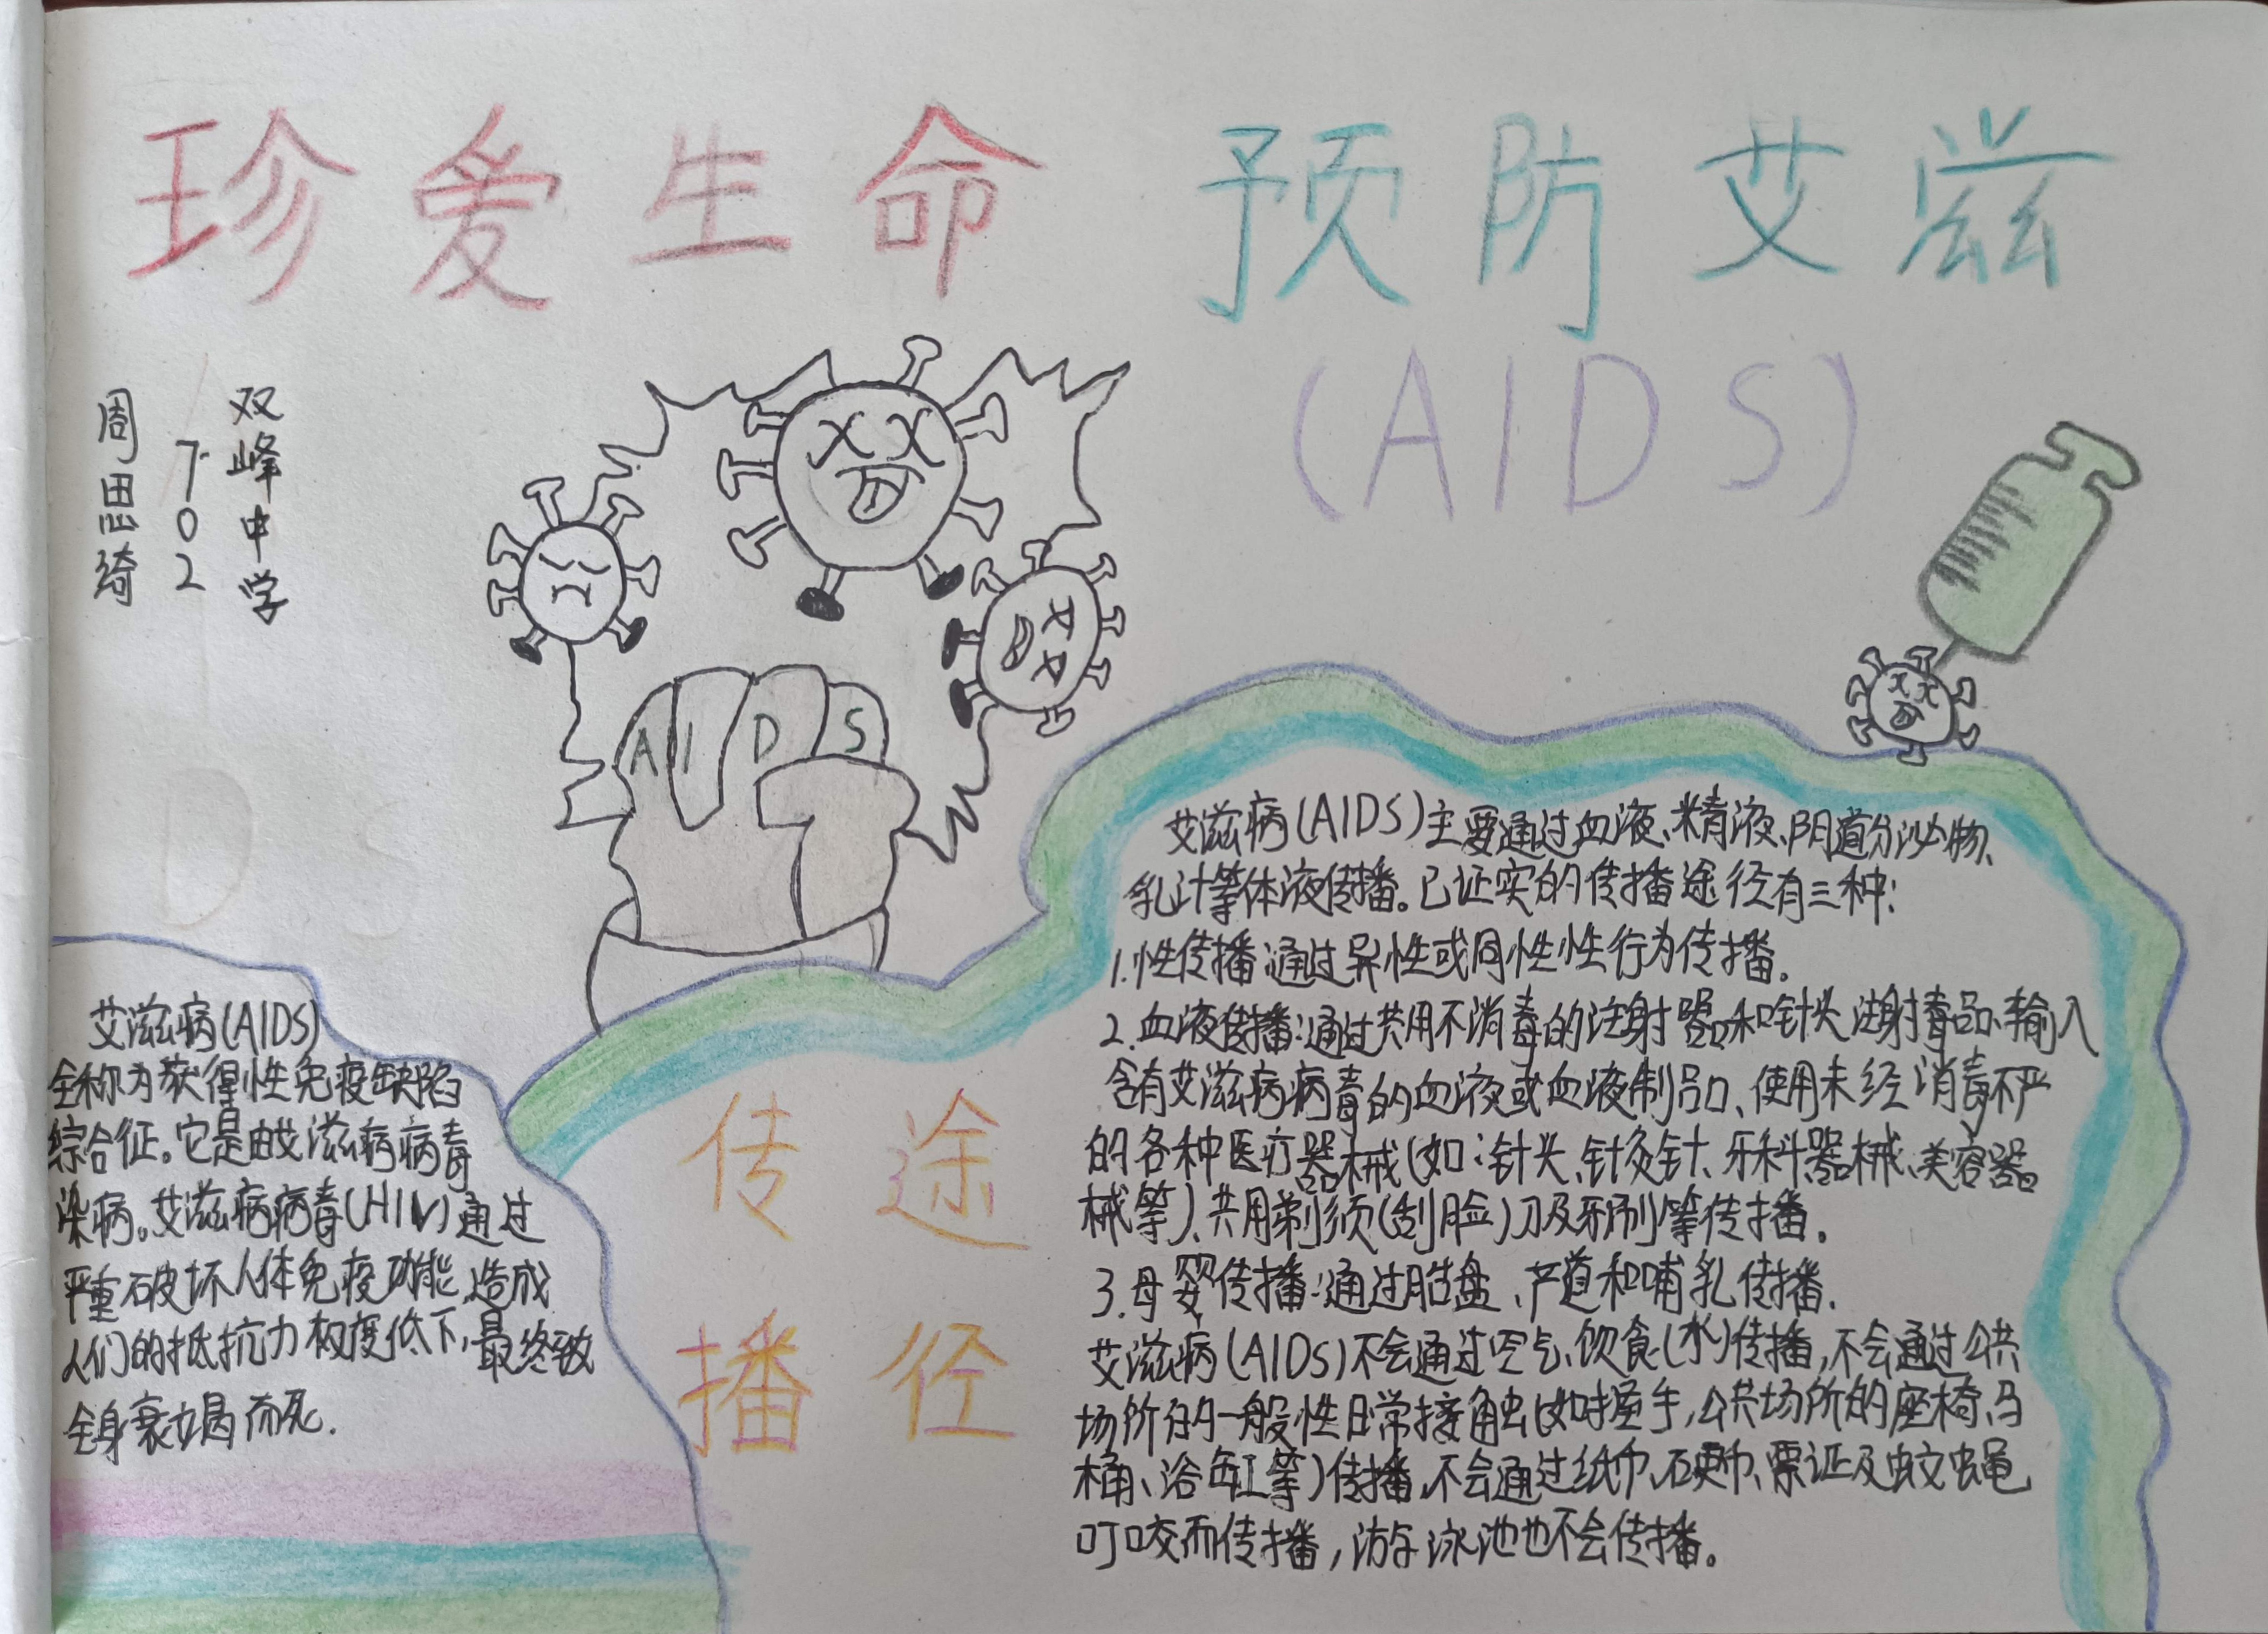 珍爱生命 预防艾滋
(AIDS)
双峰中学
702
周思琦
AIDS
艾滋病(AIDS)
全称为获得性免疫缺陷
综合征。它是由艾滋病病毒
染病。艾滋病病毒(HIV)通过
严重破坏人体免疫功能,造成
人们的抵抗力极度低下,最终致
全身衰竭而死.
传途
播径
艾滋病(AIDS)主要通过血液、精液、阴道分泌物、
乳汁等体液传播。已证实的传播途径有三种:
1.性传播:通过异性或同性性行为传播。
2.血液传播:通过共用不消毒的注射器和针头注射毒品、输入
含有艾滋病病毒的血液或血液制品、使用未经消毒不严
的各种医疗器械(如:针头、针灸针、牙科器械、美容器
械等)、共用剃须(刮脸)刀及牙刷等传播。
3.母婴传播:通过胎盘、产道和哺乳传播.
艾滋病(AIDS)不会通过空气、饮食(水)传播,不会通过公共
场所的一般性日常接触(如握手,公共场所的座椅、马
桶、浴缸等)传播,不会通过纸巾、硬币、票证及蚊蝇
叮咬而传播,游泳池也不会传播。